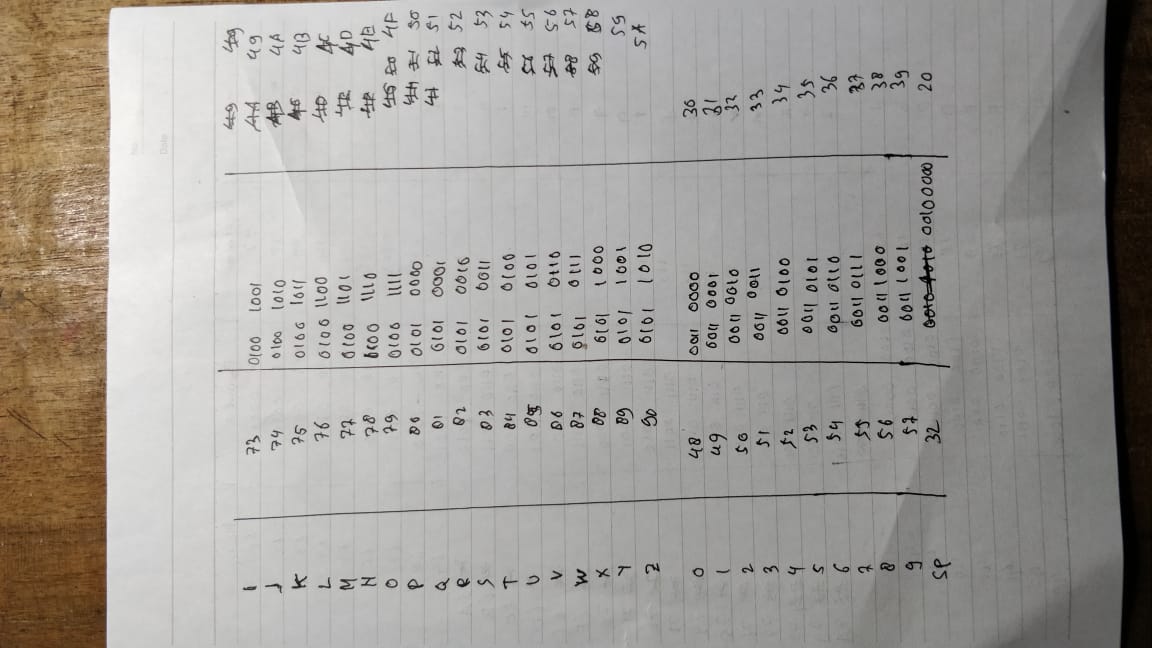 No
Date
49 49
I 73 0100 1001 4A 49
J 74 0100 1010 4B 4A
K 75 0100 1011 4C 4B
L 76 0100 1100 4D 4C
M 77 0100 1101 4E 4D
N 78 0100 1110 4F 4E
O 79 0100 1111 50 4F
P 80 0101 0000 51 50
Q 81 0101 0001 52 51
R 82 0101 0010 53 52
S 83 0101 0011 54 53
T 84 0101 0100 55 54
U 85 0101 0101 56 55
V 86 0101 0110 57 56
W 87 0101 0111 58 57
X 88 0101 1000 59 58
Y 89 0101 1001 59
Z 90 0101 1010 5A
0 48 0011 0000 30
1 49 0011 0001 31
2 50 0011 0010 32
3 51 0011 0011 33
4 52 0011 0100 34
5 53 0011 0101 35
6 54 0011 0110 36
7 55 0011 0111 37
8 56 0011 1000 38
9 57 0011 1001 39
SP 32 00100000 20